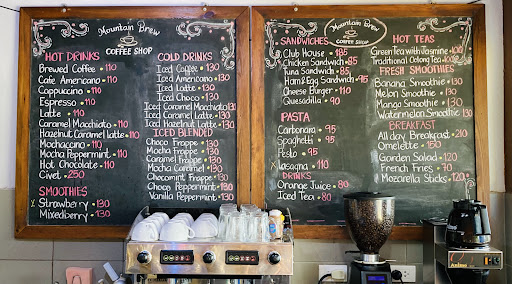 Mountain Brew
COFFEE SHOP
HOT DRINKS
Brewed Coffee • 110
Cafe Americano • 110
Cappuccino • 110
Espresso • 110
Latte • 110
Caramel Macchiato • 110
Hazelnut Caramel latte • 110
Mochaccino • 110
Mocha Peppermint • 110
Hot Chocolate • 110
Civet 250
SMOOTHIES
x Strawberry • 130
Mixedberry • 130
COLD DRINKS
Iced Coffee • 130
Iced Americano • 130
Iced Latte • 130
Iced Choco • 130
Iced Caramel Macchiato 130
Iced Caramel Latte • 130
Iced Hazelnut Latte • 130
ICED BLENDED
Choco Frappe • 130
Mocha Frappe • 130
Caramel Frappe • 130
Mocha Caramel • 130
Chocomint Frappe • 130
Choco Peppermint • 130
Vanilla Berry • 130
Mountain Brew
COFFEE SHOP
SANDWICHES
Club House • 185
Chicken Sandwich • 85
Tuna Sandwich • 85
Ham & Egg Sandwich • 95
Cheese Burger • 110
Quesadilla • 90
PASTA
Carbonara • 95
Spaghetti • 95
Pesto • 95
x lasagna • 110
DRINKS
Orange Juice • 80
Iced Tea • 80
HOT TEAS
Green Tea with Jasmine • 100
Traditional Oolong Tea • 100
FRESH SMOOTHIES
Banana Smoothie • 130
Melon Smoothie • 130
Mango Smoothie • 130
Watermelon Smoothie • 130
BREAKFAST
All day Breakfast • 210
Omelette • 150
Garden Salad • 120
French Fries • 70
Mozarella Sticks • 120